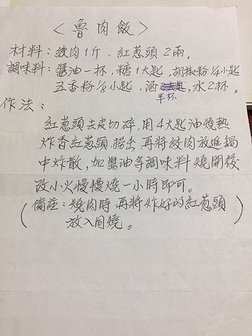 <魯肉飯>
材料：絞肉1斤．紅葱頭2兩，
調味料：醬油一杯．糖1大匙．胡椒粉¼小匙
五香粉¼小匙．酒半杯，水2杯．
作法：
紅葱頭去皮切碎，用4大匙油燒熱
炸香紅葱頭．撈出．再將絞肉放進鍋
中炒散，加醬油等調味料燒開後
改小火慢慢燒一小時即可。
(備註：燒肉時．再將炸好的紅葱頭
放入同燒。)